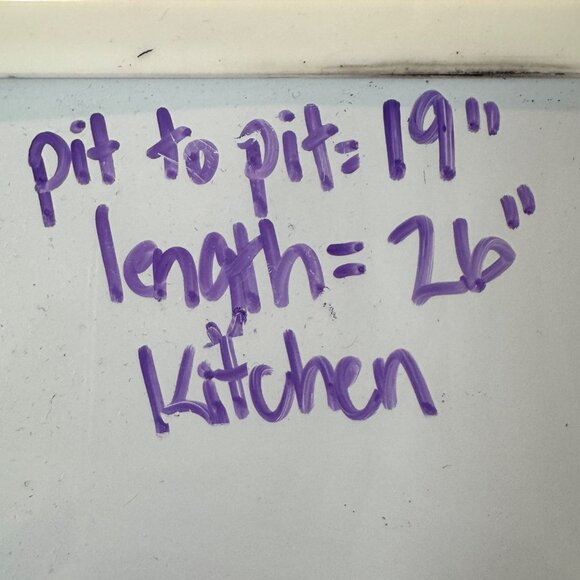 pit to pit= 19"
length= 26"
Kitchen